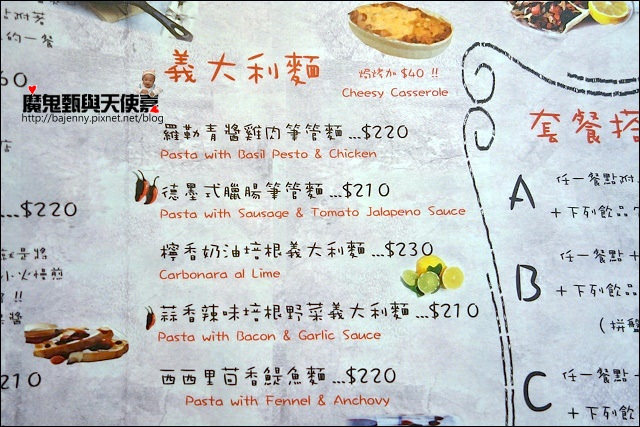 點附著
的一餐
60
店
...$220
就是將
小火慢煎
了!!
醬
210
義大利麵
焗烤加 $40 !!
Cheesy Casserole
魔鬼甄與天使嘉
http://bajenny.pixnet.net/blog
羅勒青醬雞肉筆管麵...$220
Pasta with Basil Pesto & Chicken
德墨式臘腸筆管麵...$210
Pasta with Sausage & Tomato Jalapeno Sauce
檸香奶油培根義大利麵...$230
Carbonara al Lime
蒜香辣味培根野菜義大利麵...$210
Pasta with Bacon & Garlic Sauce
西西里茴香鯷魚麵...$220
Pasta with Fennel & Anchovy
套餐搭
A
任一餐點附
+下列飲品
B
任一餐點+
+下列飲品
(拼盤
C
任一餐點
+下列飲